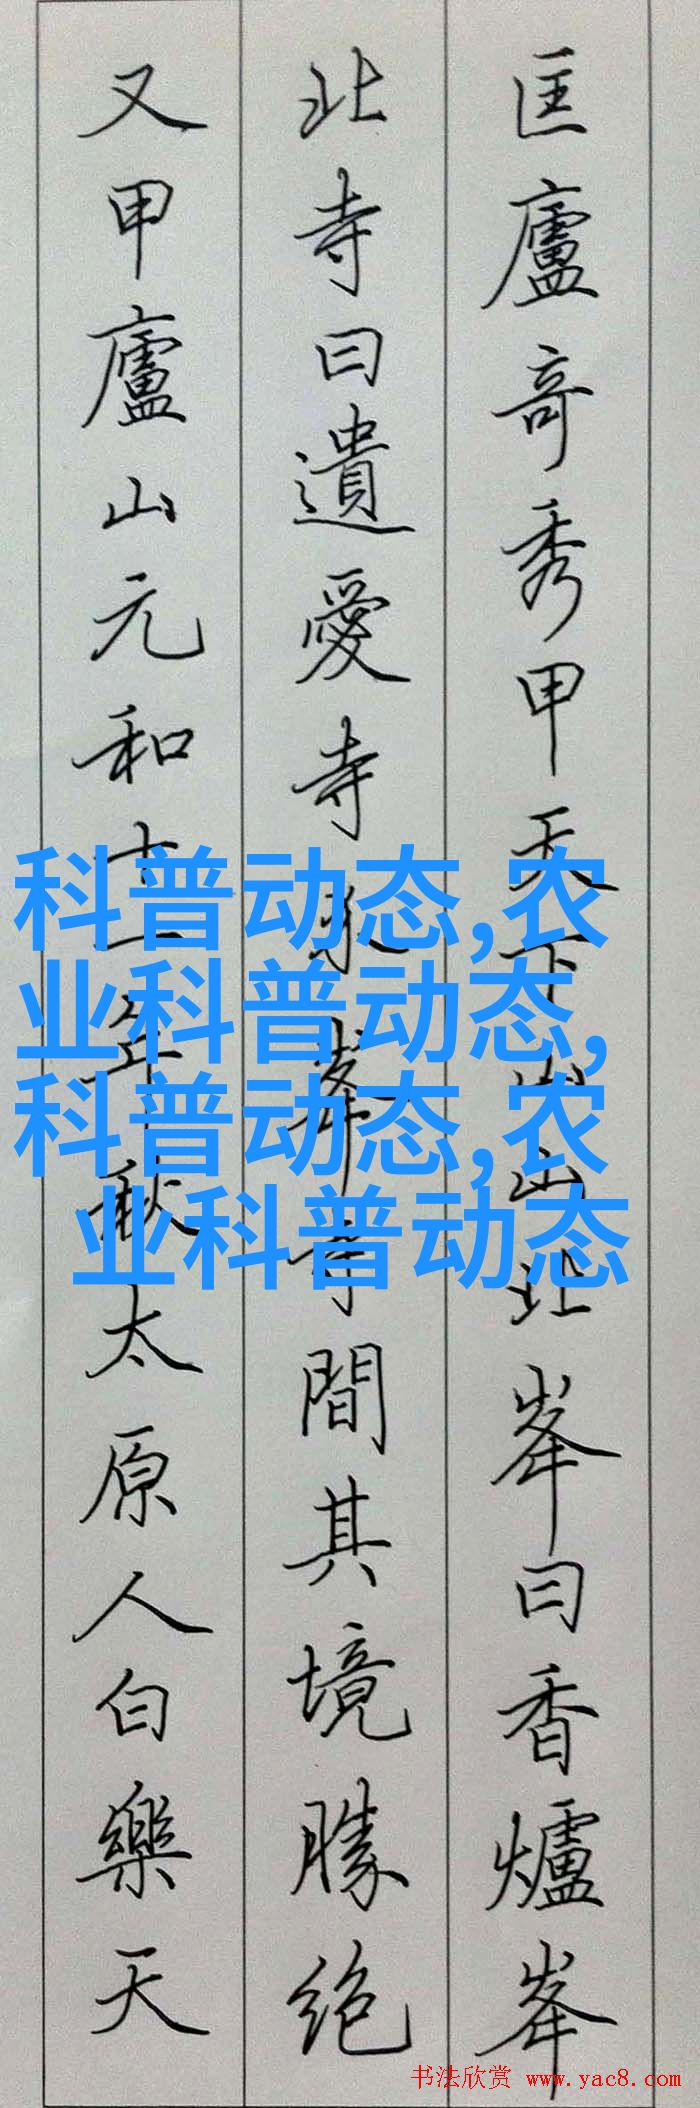 匡廬奇秀甲天下山山北峯曰香爐峯
北寺曰遺愛寺介峯寺間其境勝絶
又甲廬山元和十一年秋太原人白樂天
科普动态,农
业科普动态,
科普动态,农
业科普动态
书法欣赏 www.yac8.com